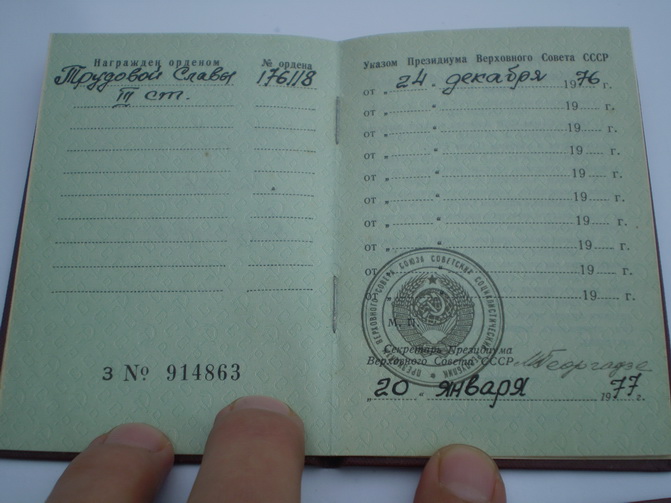 Награжден орденом
№ ордена
Трудовой Славы
176118
III ст.
З № 914863
Указом Президиума Верховного Совета СССР
от „ 24 “ декабря 1976 г.
от „ “ 19 г.
от „ “ 19 г.
от „ “ 19 г.
от „ “ 19 г.
от „ “ 19 г.
от „ “ 19 г.
от „ “ 19 г.
от „ “ 19 г.
от „ “ 19 г.
М. П.
Секретарь Президиума
Верховного Совета СССР
М Георгадзе
„ 20 “ января 1977 г.